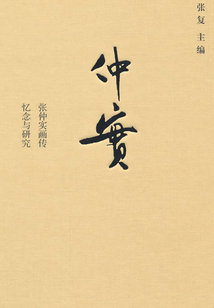 张复 主编
仲實
张仲实画传
忆念与研究